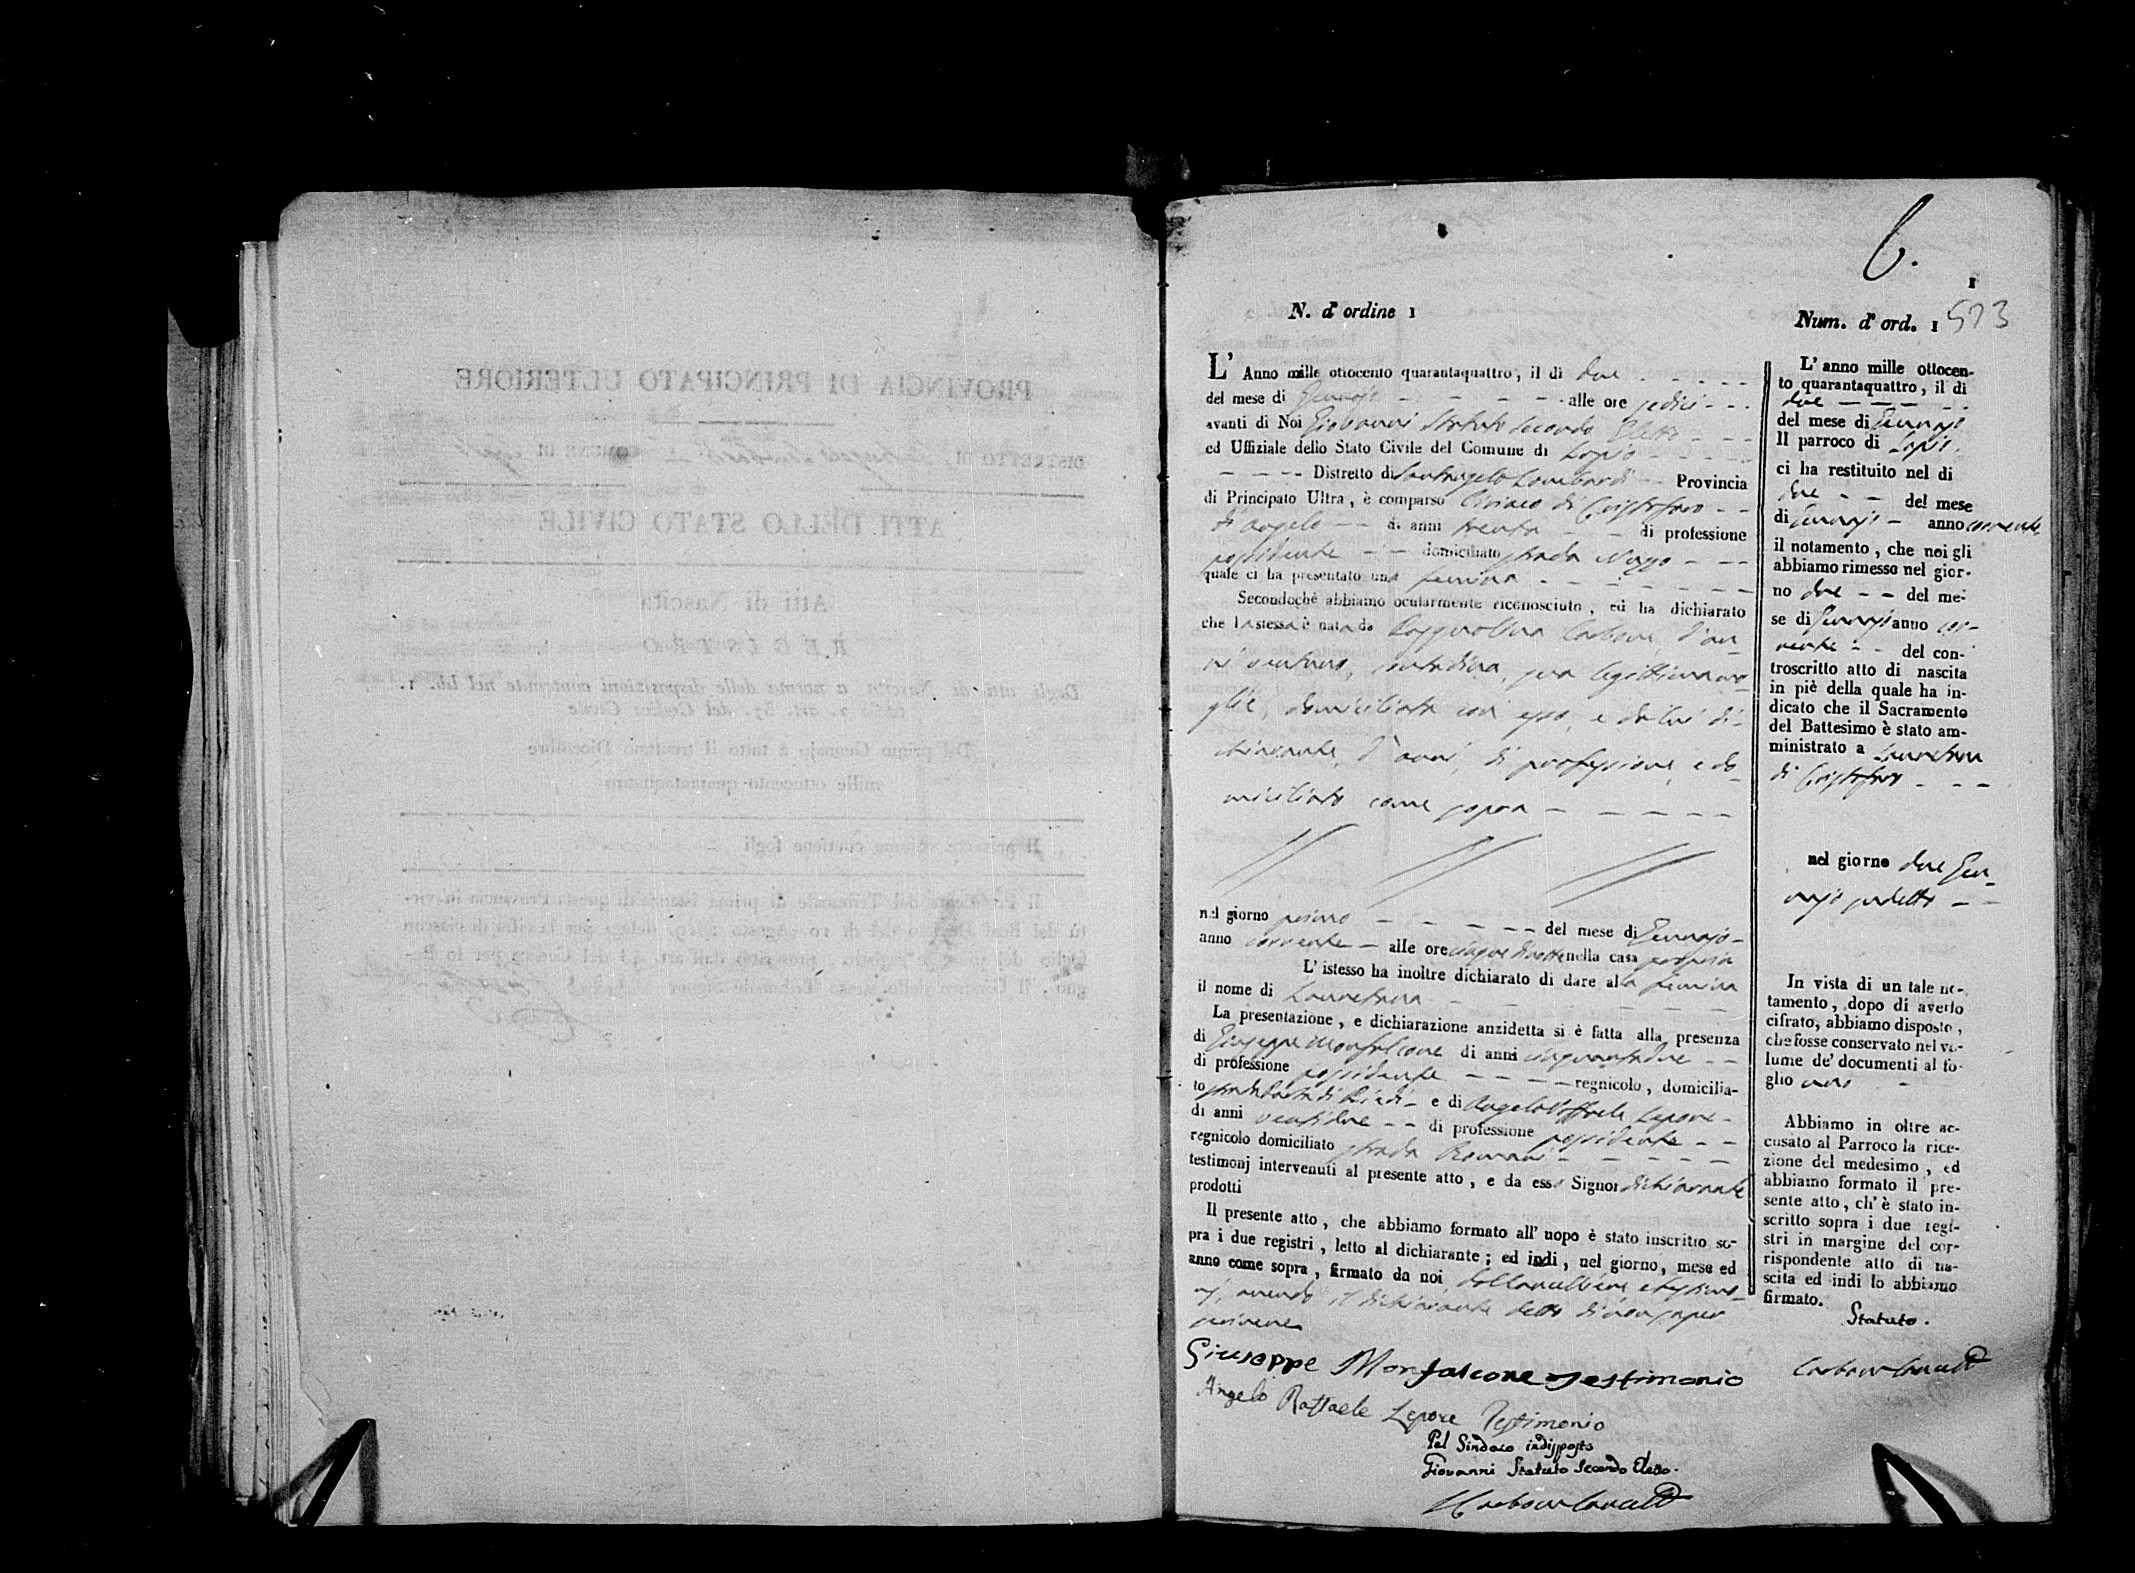 6.
1
N. d' ordine 1
L' Anno mille ottocento quarantaquattro, il di due
del mese di Gennajo alle ore sedici
avanti di Noi Giovanni Statuto Secondo Eletto
ed Uffiziale dello Stato Civile del Comune di Lapio
Distretto di Santangelo Lombardi Provincia
di Principato Ultra, è comparso Ciriaco di Cristofaro
di Angelo di anni trenta di professione
possidente domiciliato strada
quale ci ha presentato una femina
Secondochè abbiamo ocularmente riconosciuto, ed ha dichiarato
che la stessa è nata da Pasqualina Carbone, d'an-
ni ventuno, contadina, sua legittima mo-
glie, domiciliata con esso, e da lui di-
chiarante, d'anni, di professione, e do-
miciliato come sopra
nel giorno primo del mese di Gennajo
anno corrente alle ore cinque di notte nella casa propria
L' istesso ha inoltre dichiarato di dare alla femina
il nome di Lauretana
La presentazione, e dichiarazione anzidetta si è fatta alla presenza
di Giuseppe Monfalcone di anni cinquantadue
di professione possidente regnicolo, domicilia-
to strada e di Angelo Raffaele Lepore
di anni ventidue di professione possidente
regnicolo domiciliato strada Romani
testimonj intervenuti al presente atto, e da esso Signor dichiarante
prodotti
Il presente atto, che abbiamo formato all' uopo è stato inscritto so-
pra i due registri, letto al dichiarante; ed indi, nel giorno, mese ed
anno come sopra, firmato da noi, dal Cancelliere, e testimo-
nj, avendo il dichiarante detto di non saper
scrivere
Giuseppe Monfalcone Testimonio
Angelo Raffaele Lepore Testimonio
Pel Sindaco indisposto
Giovanni Statuto Secondo Eletto.
Carbone
Num. d' ord. 1 573
L' anno mille ottocen-
to quarantaquattro, il di
due
del mese di Gennajo
Il parroco di Lapio
ci ha restituito nel di
due del mese
di Gennajo anno corrente
il notamento, che noi gli
abbiamo rimesso nel gior-
no due del me-
se di Gennajo anno cor-
rente del con-
troscritto atto di nascita
in piè della quale ha in-
dicato che il Sacramento
del Battesimo è stato am-
ministrato a Lauretana
di Cristofaro
nel giorno due Gen-
najo sudetto
In vista di un tale no-
tamento, dopo di averlo
cifrato, abbiamo disposto,
che fosse conservato nel vo-
lume de' documenti al fo-
glio uno
Abbiamo in oltre ac-
cusato al Parroco la rice-
zione del medesimo, ed
abbiamo formato il pre-
sente atto, ch' è stato in-
scritto sopra i due regi-
stri in margine del cor-
rispondente atto di na-
scita ed indi lo abbiamo
firmato.
Statuto.
Carbone